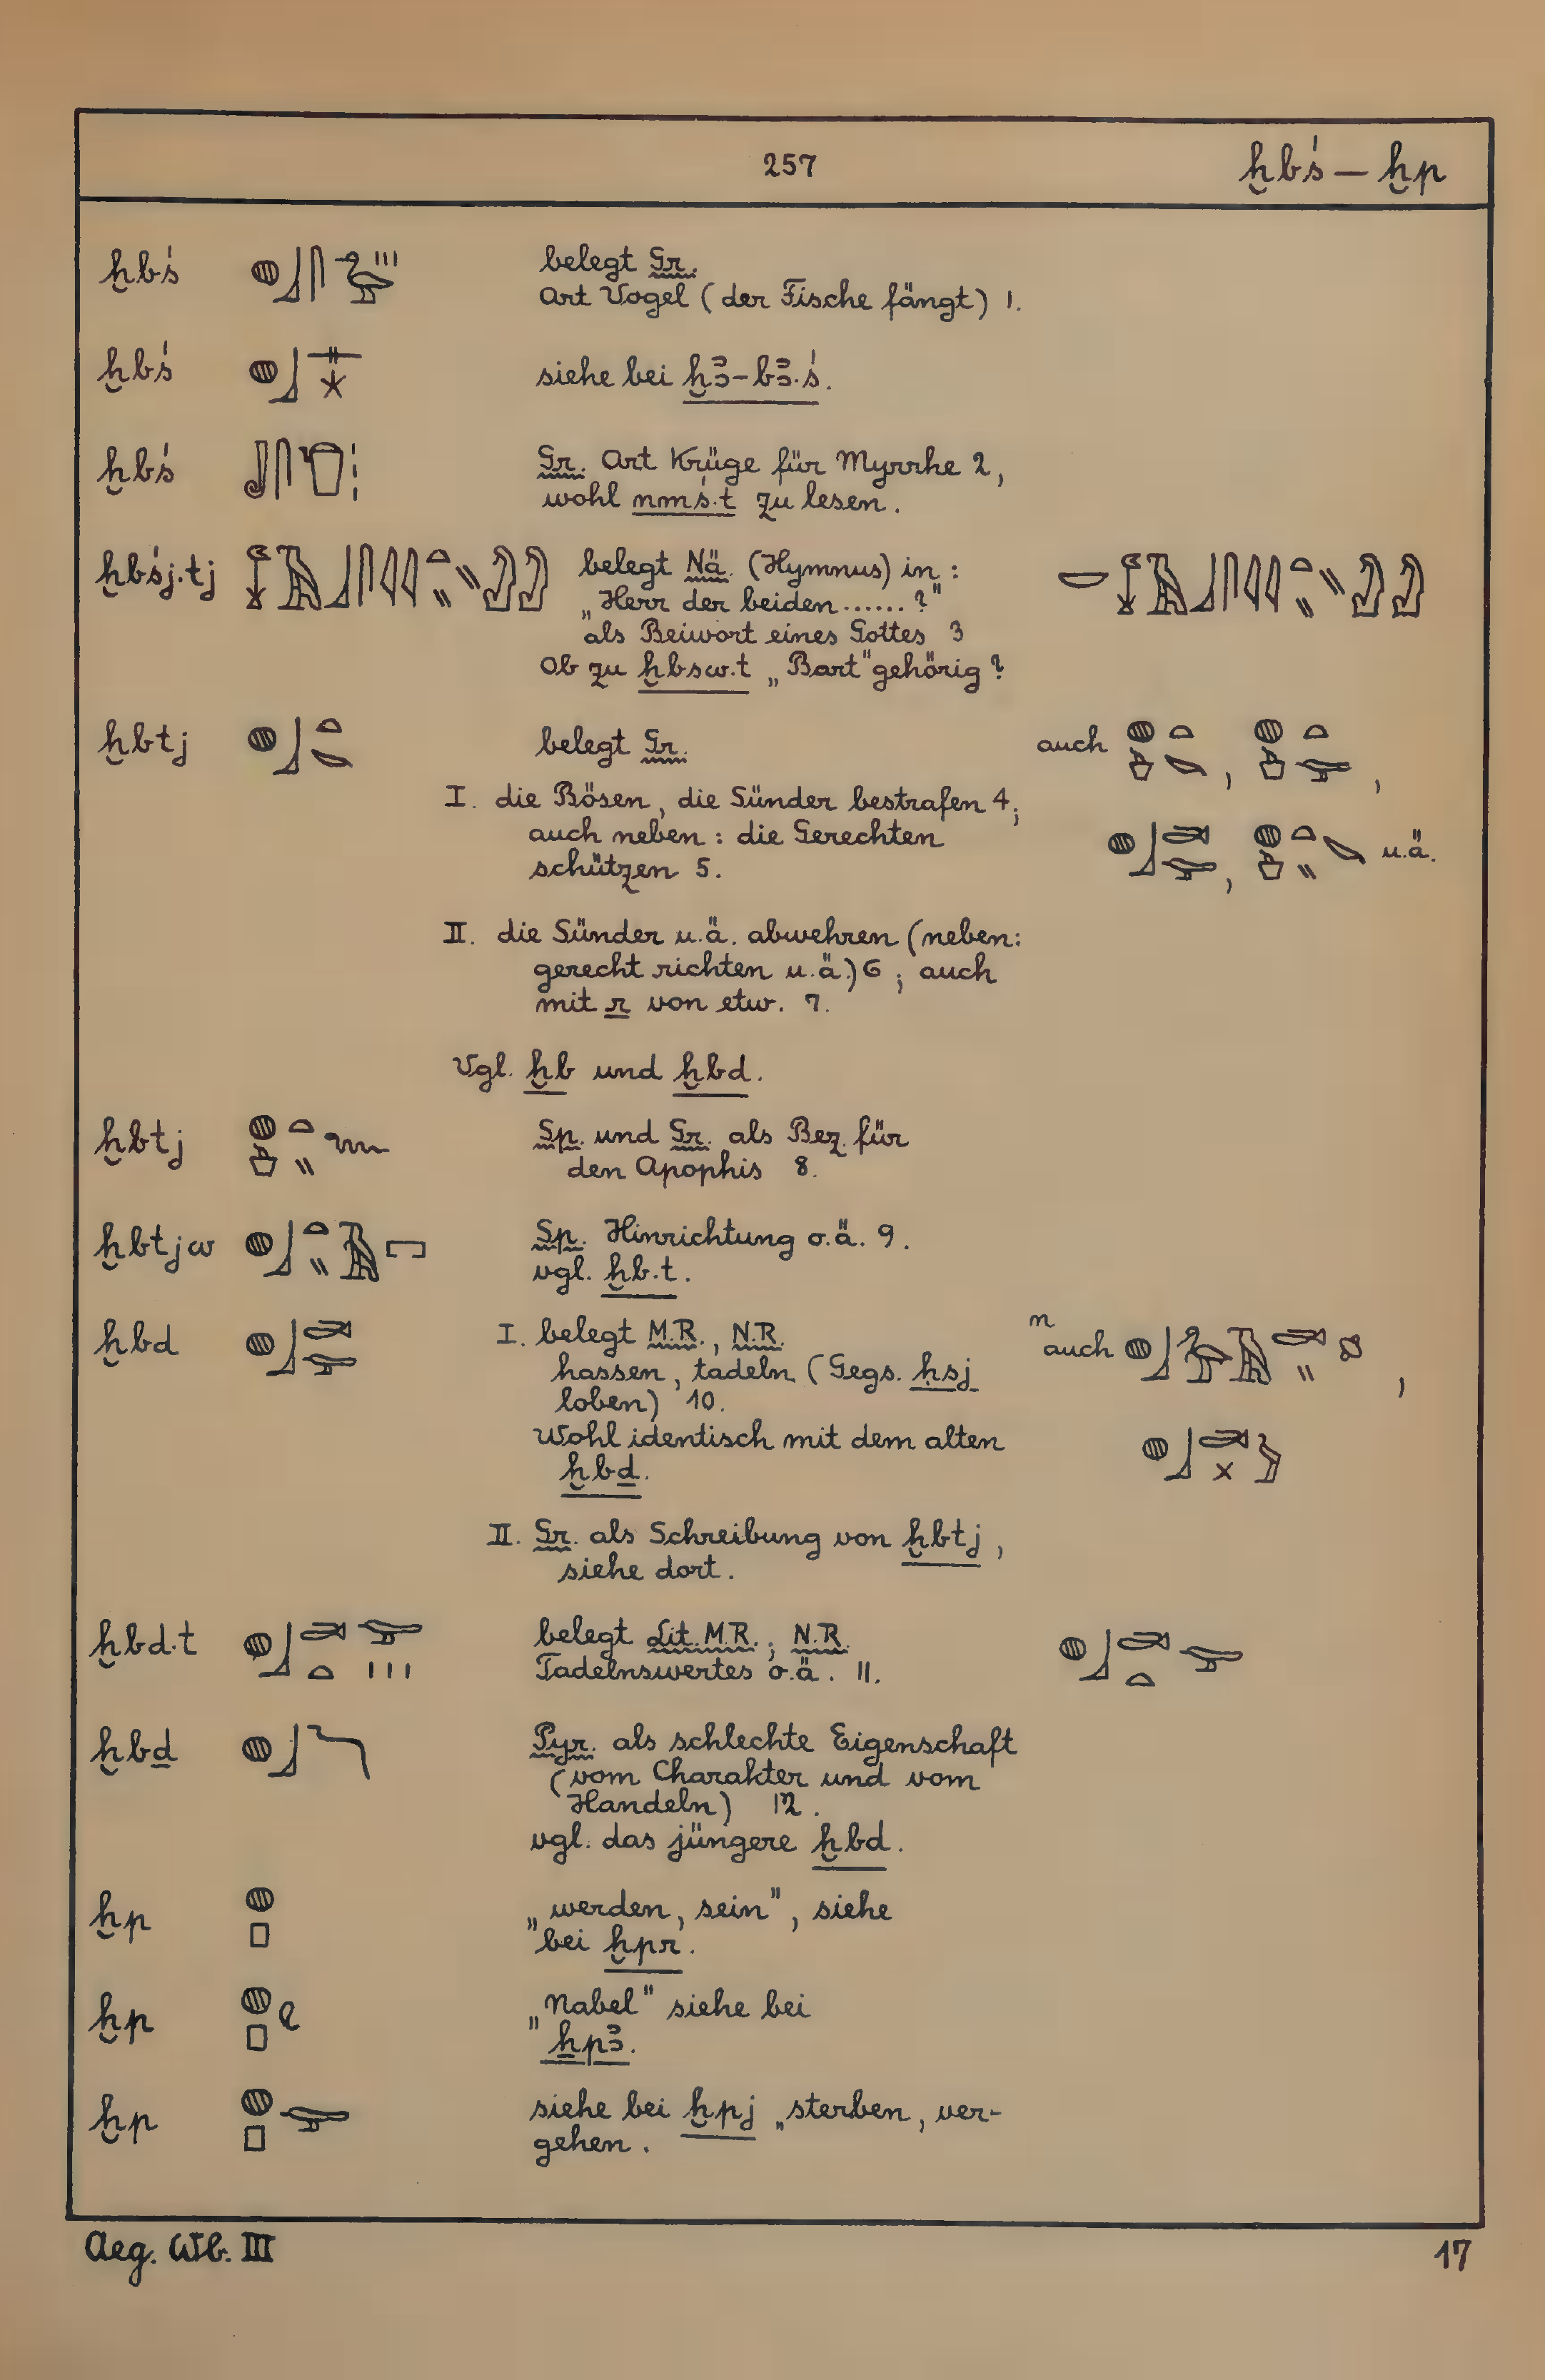 257 ḫbś — ḫp
ḫbś belegt Gr.
Art Vogel (der Fische fängt) 1.
ḫbś siehe bei ḫꜣ-bꜣ.ś.
ḫbś Gr. Art Krüge für Myrrhe 2,
wohl nmś.t zu lesen.
ḫbśj.tj belegt Nä. (Hymnus) in:
„Herr der beiden ......?"
als Beiwort eines Gottes 3
Ob zu ḫbsw.t „Bart" gehörig?
ḫbtj belegt Gr. auch , ,
I. die Bösen, die Sünder bestrafen 4;
auch neben: die Gerechten , u.ä.
schützen 5.
II. die Sünder u.ä. abwehren (neben:
gerecht richten u.ä.) 6; auch
mit r von etw. 7.
Vgl. ḫb und ḫbd.
ḫbtj Sp. und Gr. als Bez. für
den Apophis 8.
ḫbtjw Sp. Hinrichtung o.ä. 9.
vgl. ḫb.t.
ḫbd I. belegt M.R., N.R. n auch ,
hassen, tadeln (Gegs. ḥsj
loben) 10.
Wohl identisch mit dem alten
ḫbḏ.
II. Gr. als Schreibung von ḫbtj,
siehe dort.
ḫbd.t belegt Lit. M.R.; N.R.
Tadelnswertes o.ä. 11.
ḫbḏ Pyr. als schlechte Eigenschaft
(vom Charakter und vom
Handeln) 12.
vgl. das jüngere ḫbd.
ḫp „werden, sein", siehe
bei ḫpr.
ḫp „Nabel" siehe bei
ẖpꜣ.
ḫp siehe bei ḫpj „sterben, ver-
gehen.
Aeg. Wb. III 17